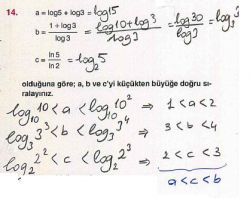 14. a = log5 + log3 = log15
b = (1 + log3)/log3 = (log10 + log3)/log3 = log30/log3 = log₃30
c = ln5/ln2 = log₂5
olduğuna göre; a, b ve c'yi küçükten büyüğe doğru sıralayınız.
log₁₀10 < a < log₁₀10² ⇒ 1 < a < 2
log₃3³ < b < log₃3⁴ ⇒ 3 < b < 4
log₂2² < c < log₂2³ ⇒ 2 < c < 3
a < c < b